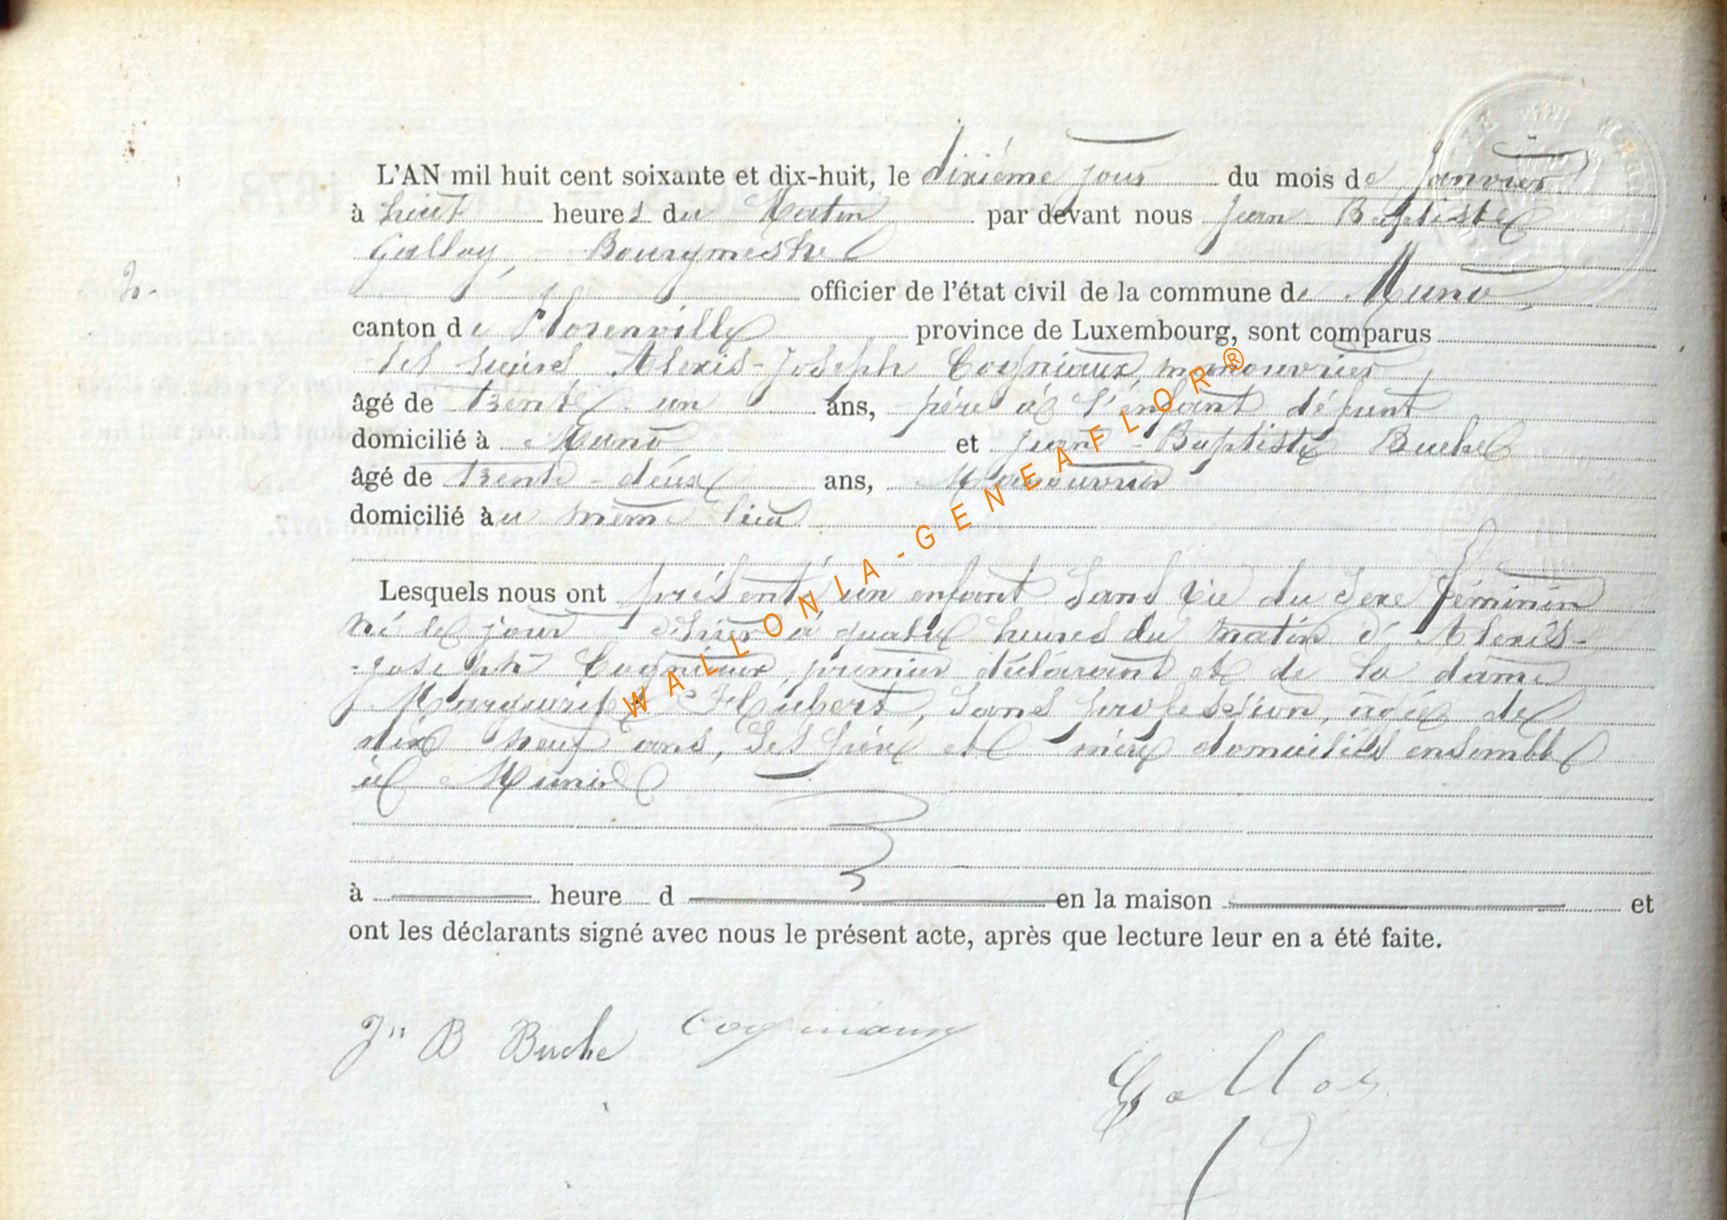 L'AN mil huit cent soixante et dix-huit, le dixième jour du mois de Janvier
à huit heures du Matin par devant nous Jean Baptiste
Galloy, Bourgmestre
2.
officier de l'état civil de la commune de Muno,
canton de Florenville province de Luxembourg, sont comparus
les sieurs Alexis-Joseph Cogniaux manouvrier
âgé de trente un ans, père à l'enfant défunt
domicilié à Muno et Jean-Baptiste Buche
âgé de trente-deux ans, Manouvrier
domicilié au même lieu
Lesquels nous ont présenté un enfant sans vie du sexe féminin
né le jour d'hier à quatre heures du matin d'Alexis-
-Joseph Cogniaux, premier déclarant et de la dame
Marguerite Hubert, sans profession, agée de
neuf ans, ses père et mère domiciliés ensemble
à Muno
à heure d en la maison et
ont les déclarants signé avec nous le présent acte, après que lecture leur en a été faite.
Jn B Buche Cogniaux
Galloy
WALLONIA-GENEAFLOR®